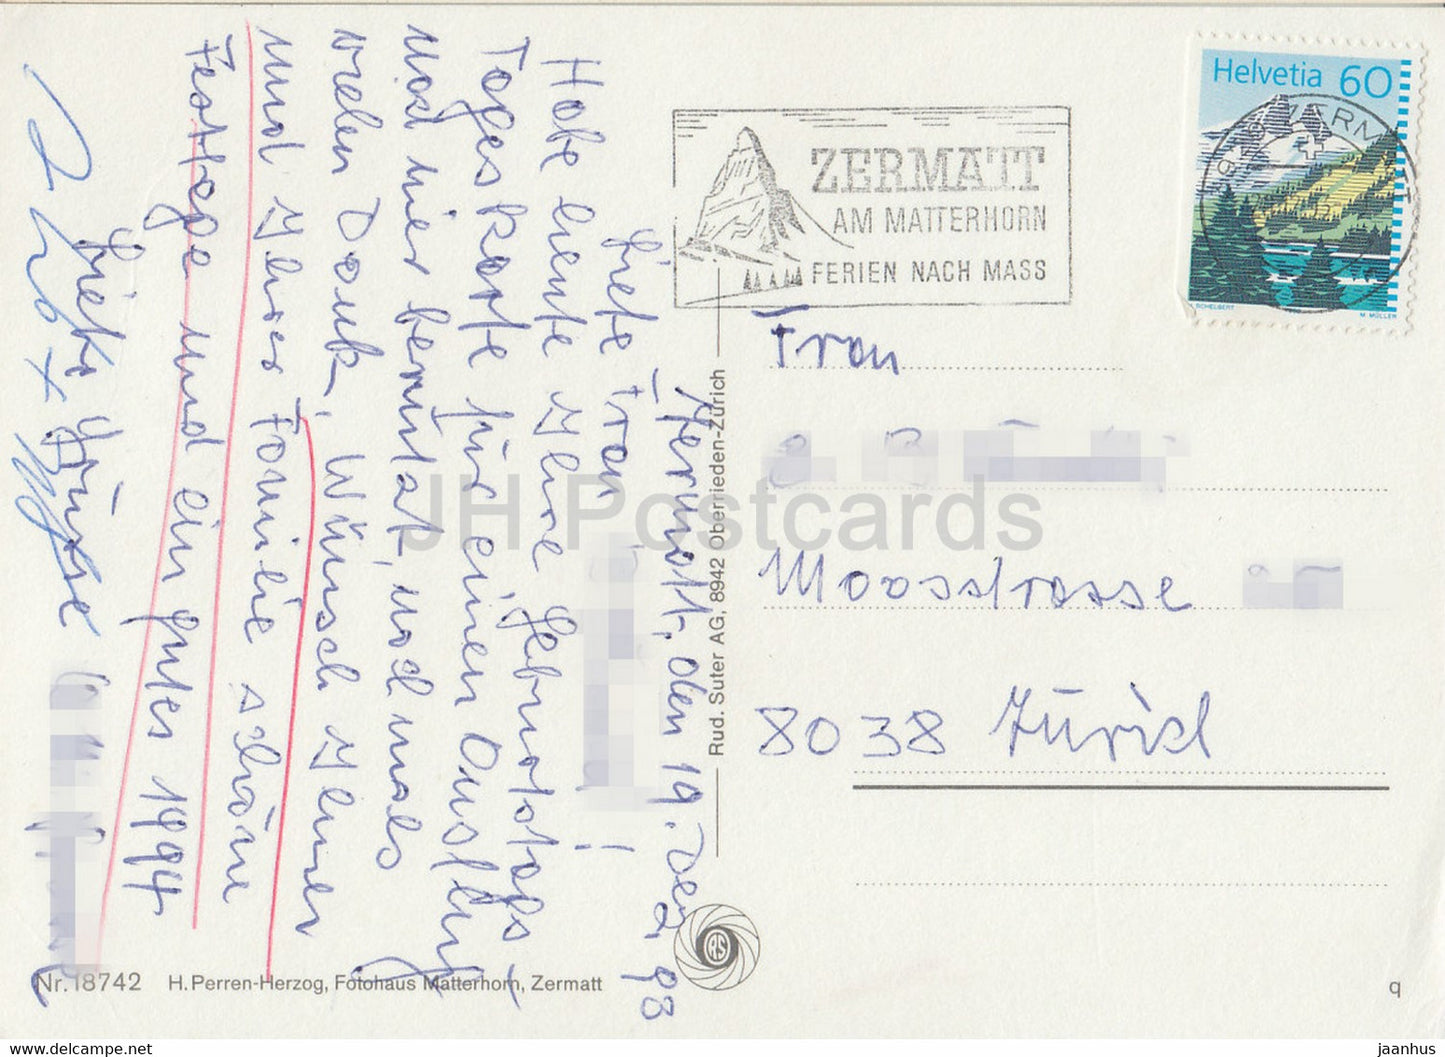 Zermatt, den 19. Dez. 93
Liebe Frau !
Habe heute Ihre Geburtstags-
Tageskarte für einen Ausflug
nach hier benutzt, nochmals
vielen Dank. Wünsch Ihnen
und Ihrer Familie schöne
Festtage und ein gutes 1994
Liebe Grüsse
ZERMATT
AM MATTERHORN
FERIEN NACH MASS
Helvetia 60
ZERMATT
SCHELBERT
M. MÜLLER
Frau
Moosstrasse
8038 Zürich
Rud. Suter AG, 8942 Oberrieden-Zürich
RS
Nr. 18742 H. Perren-Herzog, Fotohaus Matterhorn, Zermatt
q
JH Postcards
https://www.jaanhus.ee
jaanhus